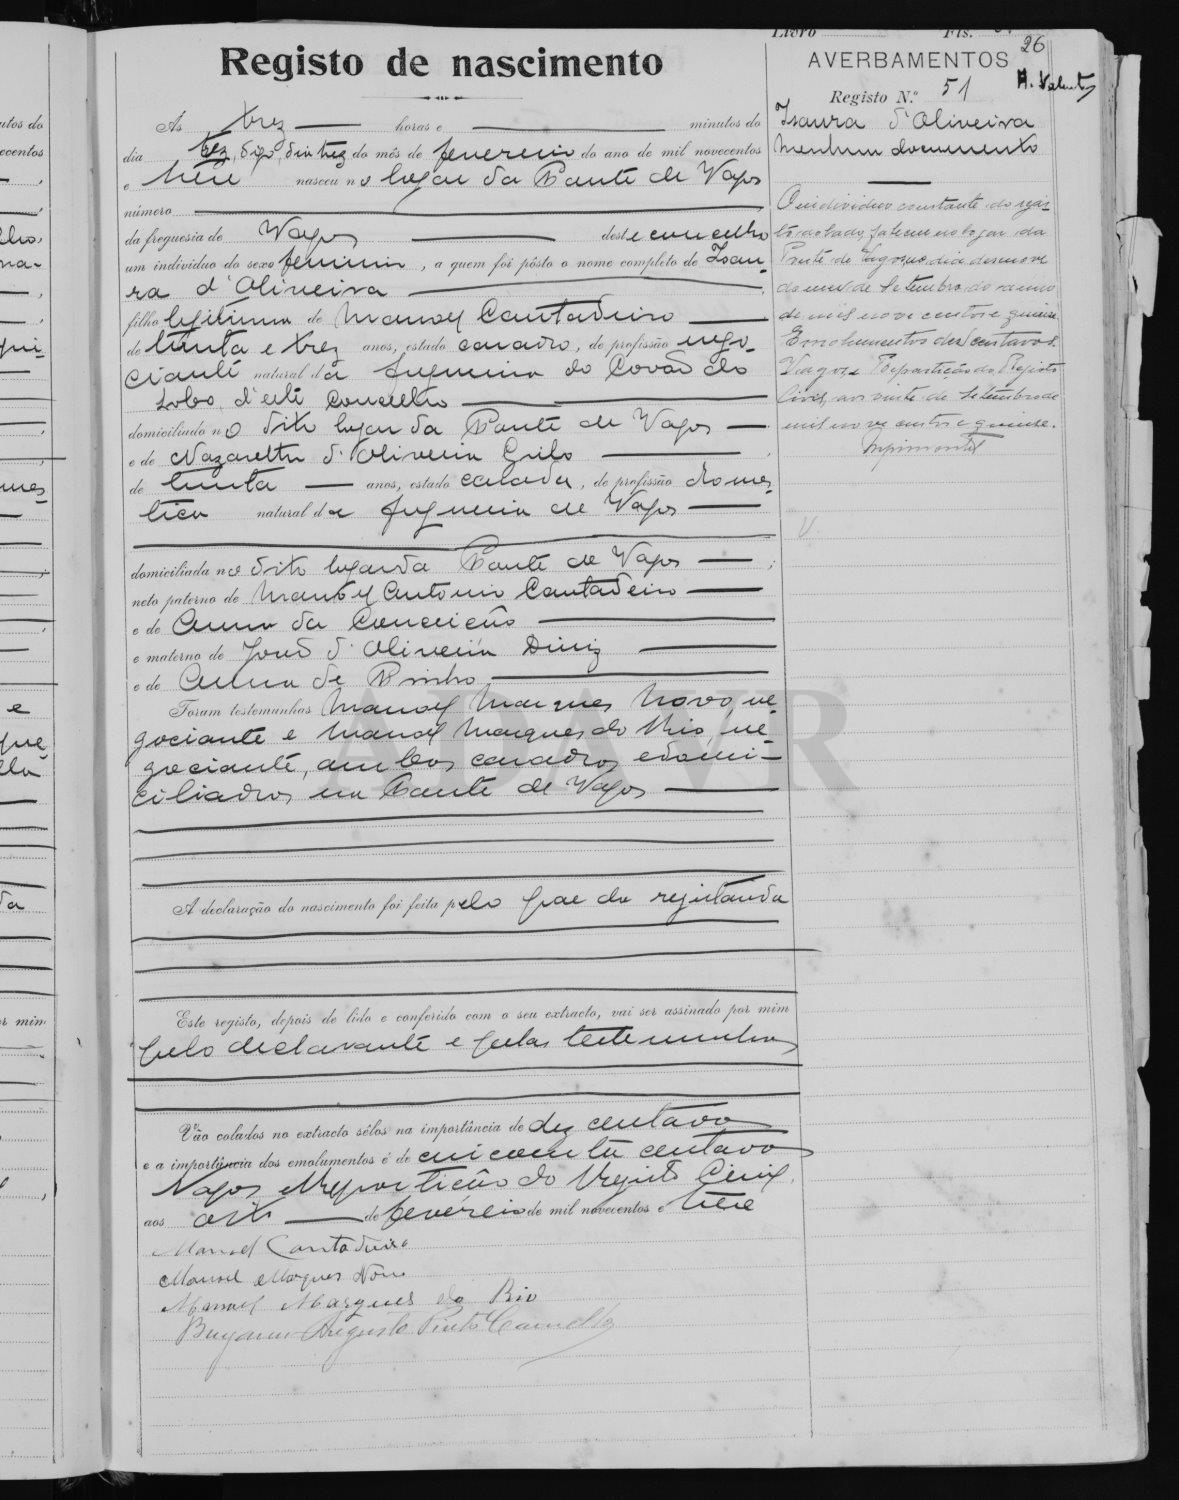 Registo de nascimento
Ás trez horas e minutos do
dia trez, digo, dia trez do mês de fevereiro do ano de mil novecentos
e treze nasceu no logar da Ponte de Vagos
número
da freguesia de Vagos deste concelho
um individuo do sexo feminino, a quem foi pôsto o nome completo de Isau-
ra d'Oliveira
filho legitima de Manoel Cantadeiro
de trinta e trez anos, estado casado, de profissão nego-
ciante natural da freguesia do Covão do
Lobo, d'este concelho
domiciliado no dito logar da Ponte de Vagos
e de Nazareth d'Oliveira Grilo
de trinta anos, estado casada, de profissão domes-
tica natural da freguesia de Vagos
domiciliada no dito logar da Ponte de Vagos
neto paterno de Manoel Antonio Cantadeiro
e de Anna da Conceição
e materno de João d'Oliveira Diniz
e de Anna de Pinho
Foram testemunhas Manoel Marques Novo, ne-
gociante e Manoel Marques do Rio, ne-
gociante, ambos casados, e domi-
ciliados na Ponte de Vagos
A declaração do nascimento foi feita pelo pae da registanda
Este registo, depois de lido e conferido com o seu extracto, vai ser assinado por mim
pelo declarante e pelas testemunhas
Vão colados no extracto sêlos na importância de dez centavos
e a importância dos emolumentos é de cincoenta centavos
Vagos, Repartição do Registo Civil,
aos oito de fevereiro de mil novecentos e treze
Manoel Cantadeiro
Manoel Marques Novo
Manoel Marques do Rio
Augusto Pinto Camello
Livro Fls.
26
AVERBAMENTOS
Registo N.º 51
Isaura d'Oliveira
Nenhum documento
O individuo constante do regis-
to ao lado, faleceu no logar da
Ponte de Vagos no dia desenove
do mez de Setembro do anno
de mil nove centos e quinze.
Emolumentos dez centavos.
Vagos e Repartição do Registo
Civil, aos vinte de Setembro de
mil nove centos e quinze.
ADAVR